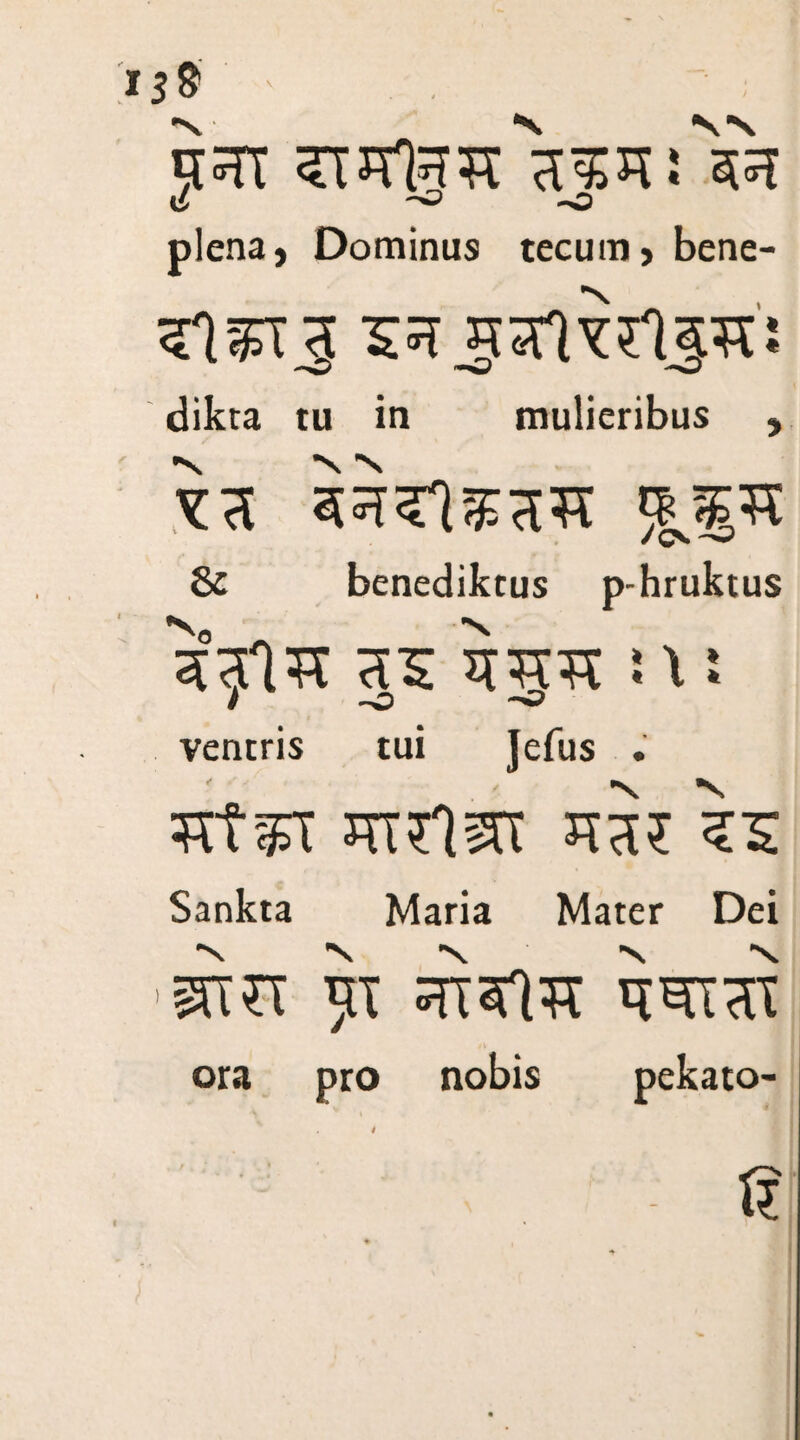 138
प्लेना दामीनुस तेकुम : बेने
plena, Dominus tecum, bene-
दीक्तातु इन मुलीएरीबुस :
dikta tu in mulieribus ,
एत बेनेदीक्तस फ्रूक्तुस
& benediktus p-hruktus
वेंत्रीस तुइ येसुस : \ :
ventris tui Jesus .
सांक्ता मारीआ मातेर देइ
Sankta Maria Mater Dei
ओरा प्रो नोबीस पेखातो
ora pro nobis pekato-
रि